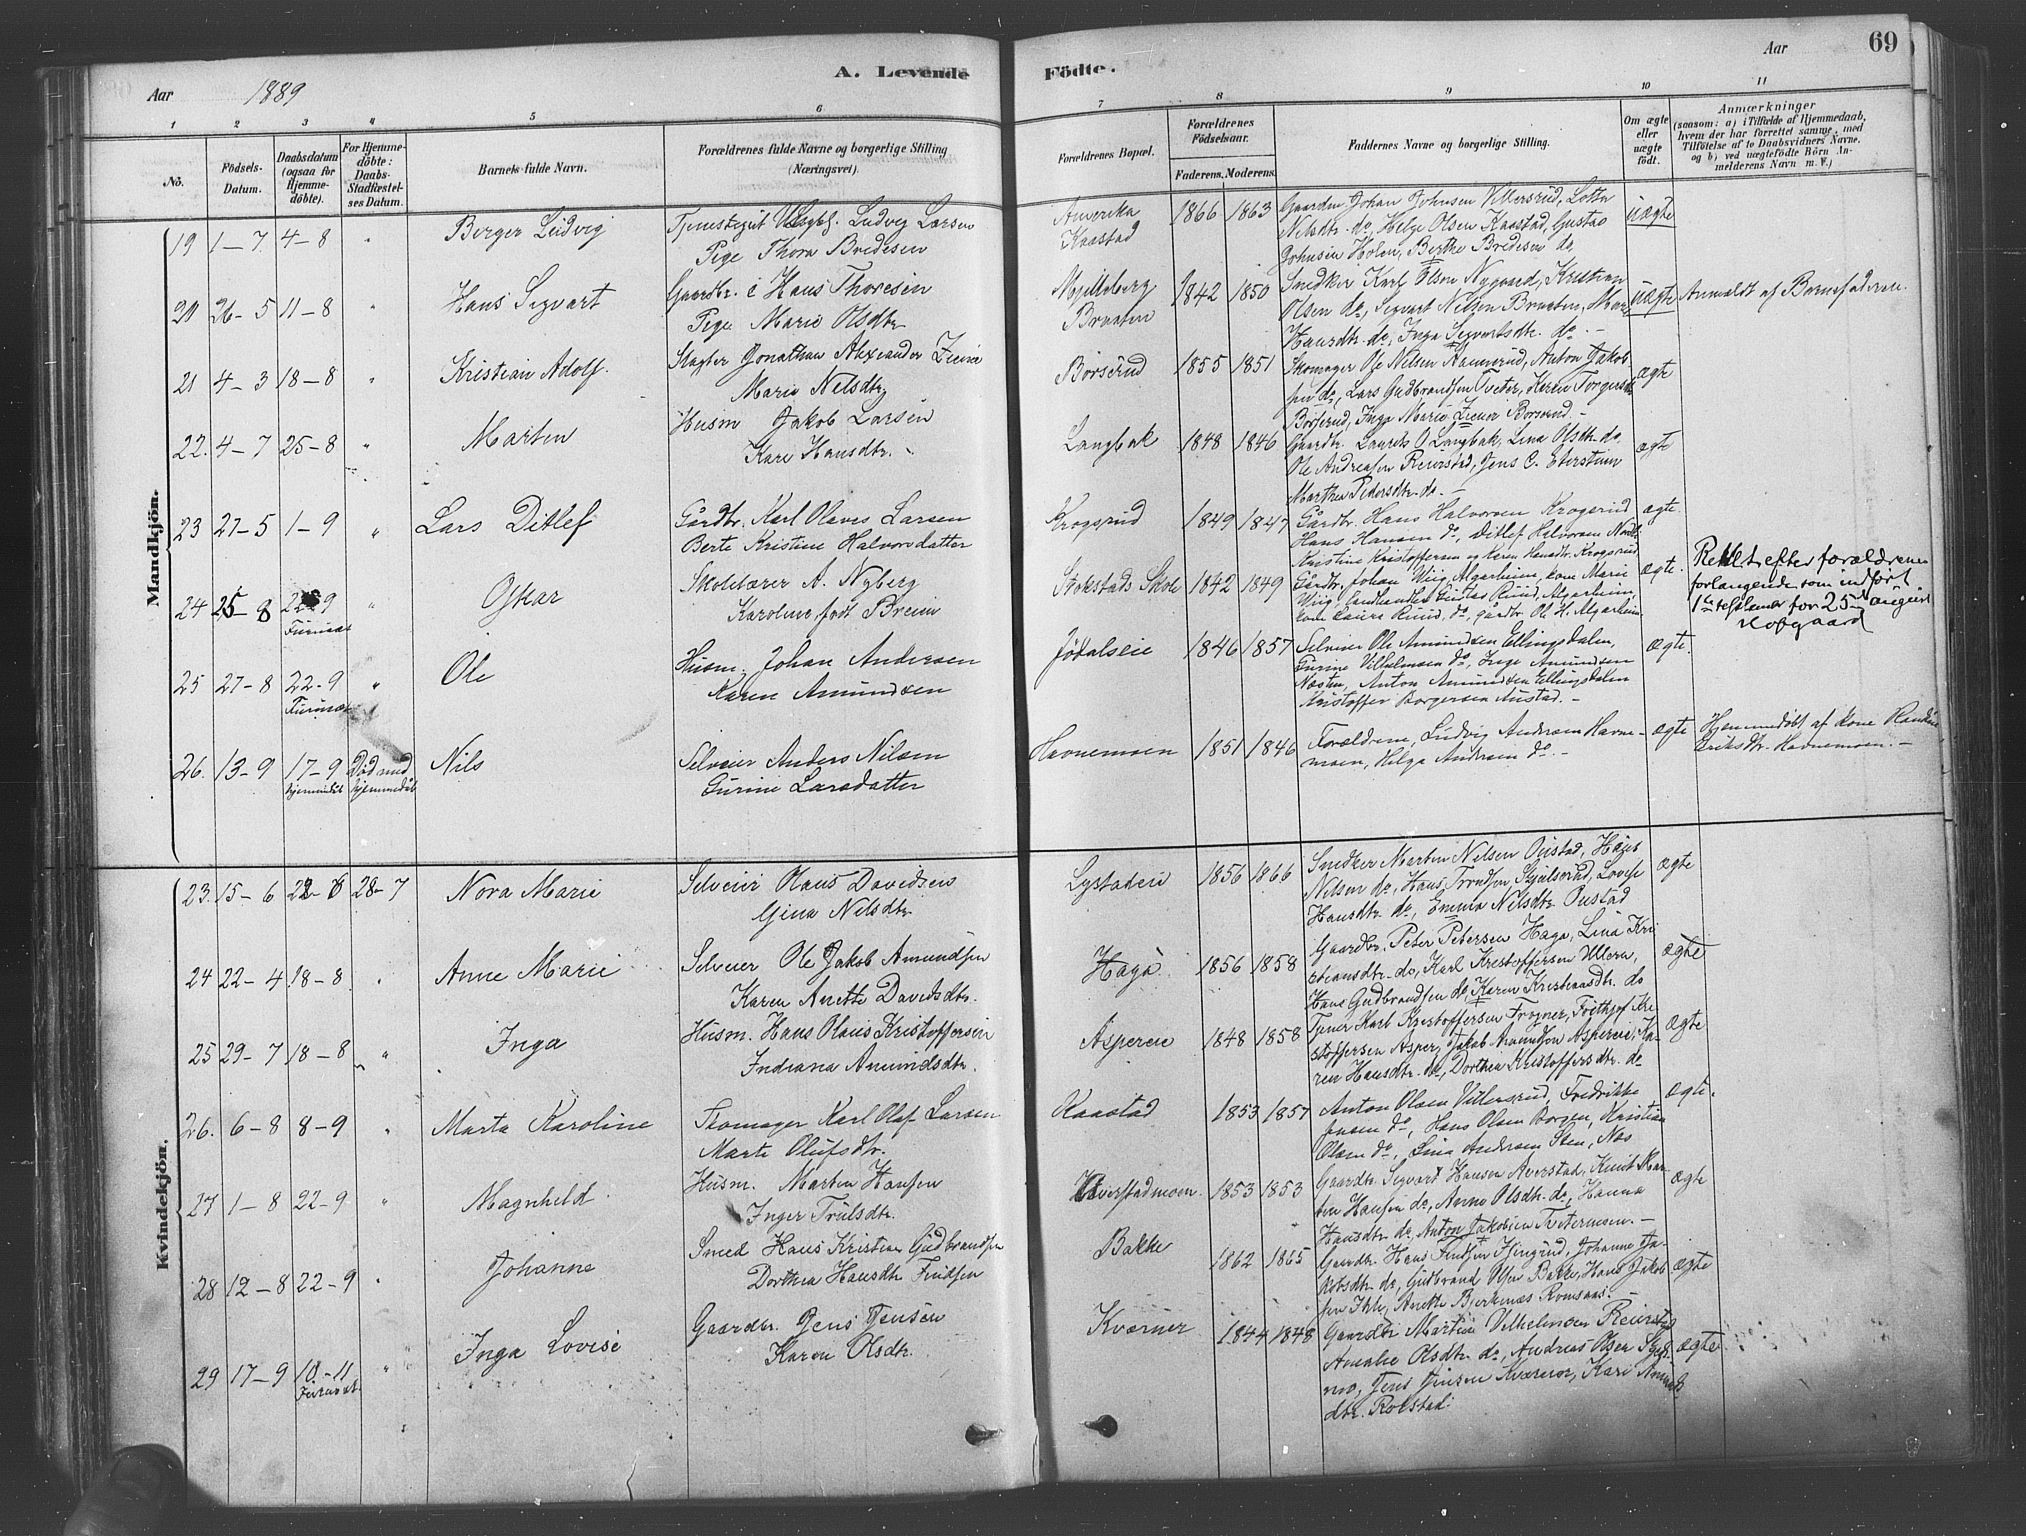 A. Levende Fødte.
Aar 1889
Aar
69
1 2 3 4 5 6 7 8 9 10 11
No.
Födsels-Datum.
Daabsdatum (ogsaa for Hjemmedöbte).
For Hjemmedöbte: Daabs-Stadfæstelses Datum.
Barnets fulde Navn.
Forældrenes fulde Navne og borgerlige Stilling (Næringsvei).
Forældrenes Bopæl.
Forældrenes Födselsaar.
Faderens. Moderens.
Faddernes Navne og borgerlige Stilling.
Om ægte eller uægte födt.
Anmærkninger (saasom: a) i Tilfælde af Hjemmedaab, hvem der har forrettet samme, med Tilföielse af to Daabsvidners Navne. og b) ved uægtefödte Börn Anmelderens Navn m. V.)
Mandkjön.
19 1-7 4-8 " Berger Ludvig
Ludvig Larsen
Pige Thora Bredesen
Amerika
Kaastad
1866 1863
Gaardm Johan Johnsen Vittersrud, Lotta
Nilsdtr. do, Helge Olsen Kaastad, Gustav
Johnsen Holen, Berthe Bredesen do,
uægte
20 26-5 11-8 " Hans Sigvart
Gaardbr. E Hans Thoresen
Pige Marie Olsdtr
Braaten
1842 1850
Snedker Karl Olsen Nygaard, Kristian
Olsen do, Segvart Nilsen Braaten,
Hansdtr. do, Inga Segvartsdtr. do. -
uægte
Anmeldt af Barnefaderen.
21 4-3 18-8 " Kristian Adolf.
Slagter Jonathan Alexander
Marie Nelsdtr
Børserud
1855 1851
Skomager Ole Nilsen Hammerud, Anton Jakob
sen do, Lars Gudbrandsen Tveter, Karen
Børserud, Inga Marie Børserud. -
ægte
22. 4-7 25-8 " Marten
Husm Jakob Larsen
Kari Hansdtr. -
Langbak
1848 1846
Gaardbr. Laurits O. Langbak, Lina Olsdtr. do,
Ole Andreasen Reierstad, Jens C. Eterstuen
Marthea Pedersdtr. do. -
ægte
23 27-5 1-9 " Lars Ditlef
Gårdbr. Karl Olaves Larsen
Berte Kristine Halvorsdatter
Krogsrud
1849 1847
Gårdbr. Hans Halvorsen Krogsrud
Hans Hansen do, Ditlef Halvorsen
Kristine Kristoffersen og Karen Hansdtr. Krogsrud
ægte.
24 25-8 9 " Oskar
Furuset
Skolelærer A. Nyberg
Karoline født Breien
Stokstads Skole
1842 1849
Gårdbr. Johan Wiig, Algarheim, kone Marie
Wiig, Landhandler Gustav Ruud, Algarheim,
kone Laura Ruud, do, gårdbr. Ole H. Algarheim
ægte.
Rettet efter forældrenes
forlangende som indført
for 25de august
Hofgaard
25 27-8 22-9 " Ole
Furuset
Husm. Johan Andersen
Karen Amundsen
Jødalseie
1846 1857
Selveier Ole Amundsen Ellingsdalen,
Gurine Vilhelmsen do, Inge Amundsen
Næsten, Anton Amundsen Ellingsdalen
Kristoffer Borgersen Austad. -
ægte.
26. 13-9 17-9 Død med Nils
hjemmedåb
Selveier Anders Nilsen
Gurine Larsdatter
Havnemoen
1851 1846
Forældrene, Ludvig Andersen Havne-
moen, Helga Andersen do. -
ægte
Hjemmedøbt af kone Randine
Eriksdtr. Havnemoen. -
Kvindekjön.
23. 15-6 28-7 Nora Marie
Selveier Olaus Davidsen
Gina Nilsdtr.
Lystadeie
1856 1866
Snedker Marten Nilsen Oustad, Hans
Nilsen do, Hans Trondsen Skjulserud, Lovise
Hansdtr. do, Emma Nilsdtr. Oustad
ægte
24 22-4 18-8 " Anne Marie
Selveier Ole Jakob Amundsen
Karen Anette Davidsdtr.
Haga
1856 1858
Gaardbr. Peter Petersen Haga, Lina Kri
stiansdtr. do, Karl Kristoffersen Ullern,
Hans Gudbrandsen do, Karen Kristiansdtr. do
ægte
25 29-7 18-8 " Inga
Husm. Hans Olaus Kristoffersen
Indiana Amundsdtr.
Aspereie
1848 1858
Tjener Karl Kristoffersen Frogner, Fritjof Kri
stoffersen Asper, Jakob Amundsen Aspereie, Ka-
ren Hansdtr. do, Dorthea Kristoffersdtr. do
ægte
26. 6-8 8-9 " Marta Karoline
Skomager Karl Olaf Larsen
Marte Olufsdtr.
Kaastad
1853 1857
Anton Olsen Vittersrud, Fredrikke
Jensen do, Hans Olsen Borgen, Kristian
Olsen do, Lina Andersen Sten, Næs
ægte.
27 1-8 22-9 " Magnhild.
Husm. Marten Hansen
Inger Trulsdtr.
Averstadmoen.
1853 1853
Gaardbr. Segvart Hansen Averstad, Knut Mar-
ten Hansen do, Anne Olsdtr. do, Hanna
Hansdtr. do, Anton Jakobsen Tvetermoen. -
ægte
28 12-8 22-9 " Johanne
Smed Hans Kristian Gudbrandsen
Dorthea Hansdtr. Findsen
Bakke
1862 1865
Gaardbr. Hans Findsen Johanne Ja-
kobsdtr. do, Gudbrand Olsen Bakke, Hans Jakob
sen Ihle, Anette Bjerkenæs Romsaas
ægte
29 17-9 10-11 " Inga Lovise
Furuset.
Gaardbr. Jens Jensen
Karen Olsdtr.
Kværner
1844 1848
Gaardbr Martin Vilhelmsen Reierstad
Amalie Olsdtr. do, Andreas Olsen
Jens Jensen Kværner, Kari Amunds
dtr. Rolstad.
ægte